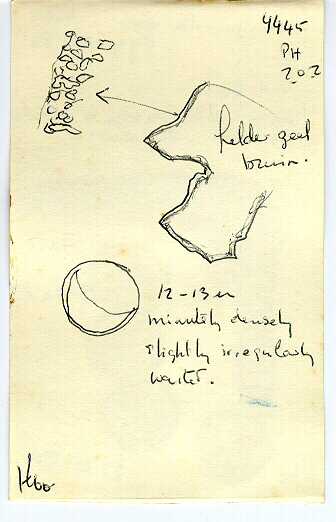 4445
PH
202
helder geel
bruin.
12-13 u
minutely densely
slightly irregularly
warted.